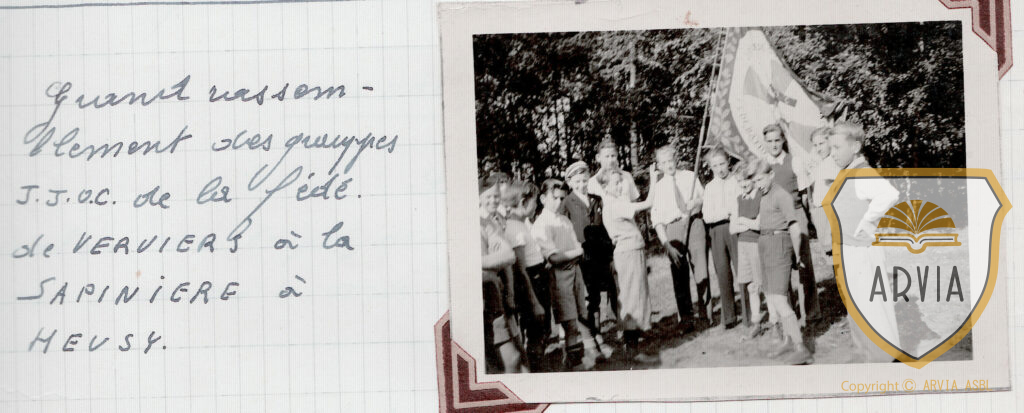 Grand rassem-
blement des grouppes
J.J.O.C. de la fédé.
de VERVIERS à la
SAPINIERE à
HEUSY.
ARVIA
Copyright © ARVIA ASBL